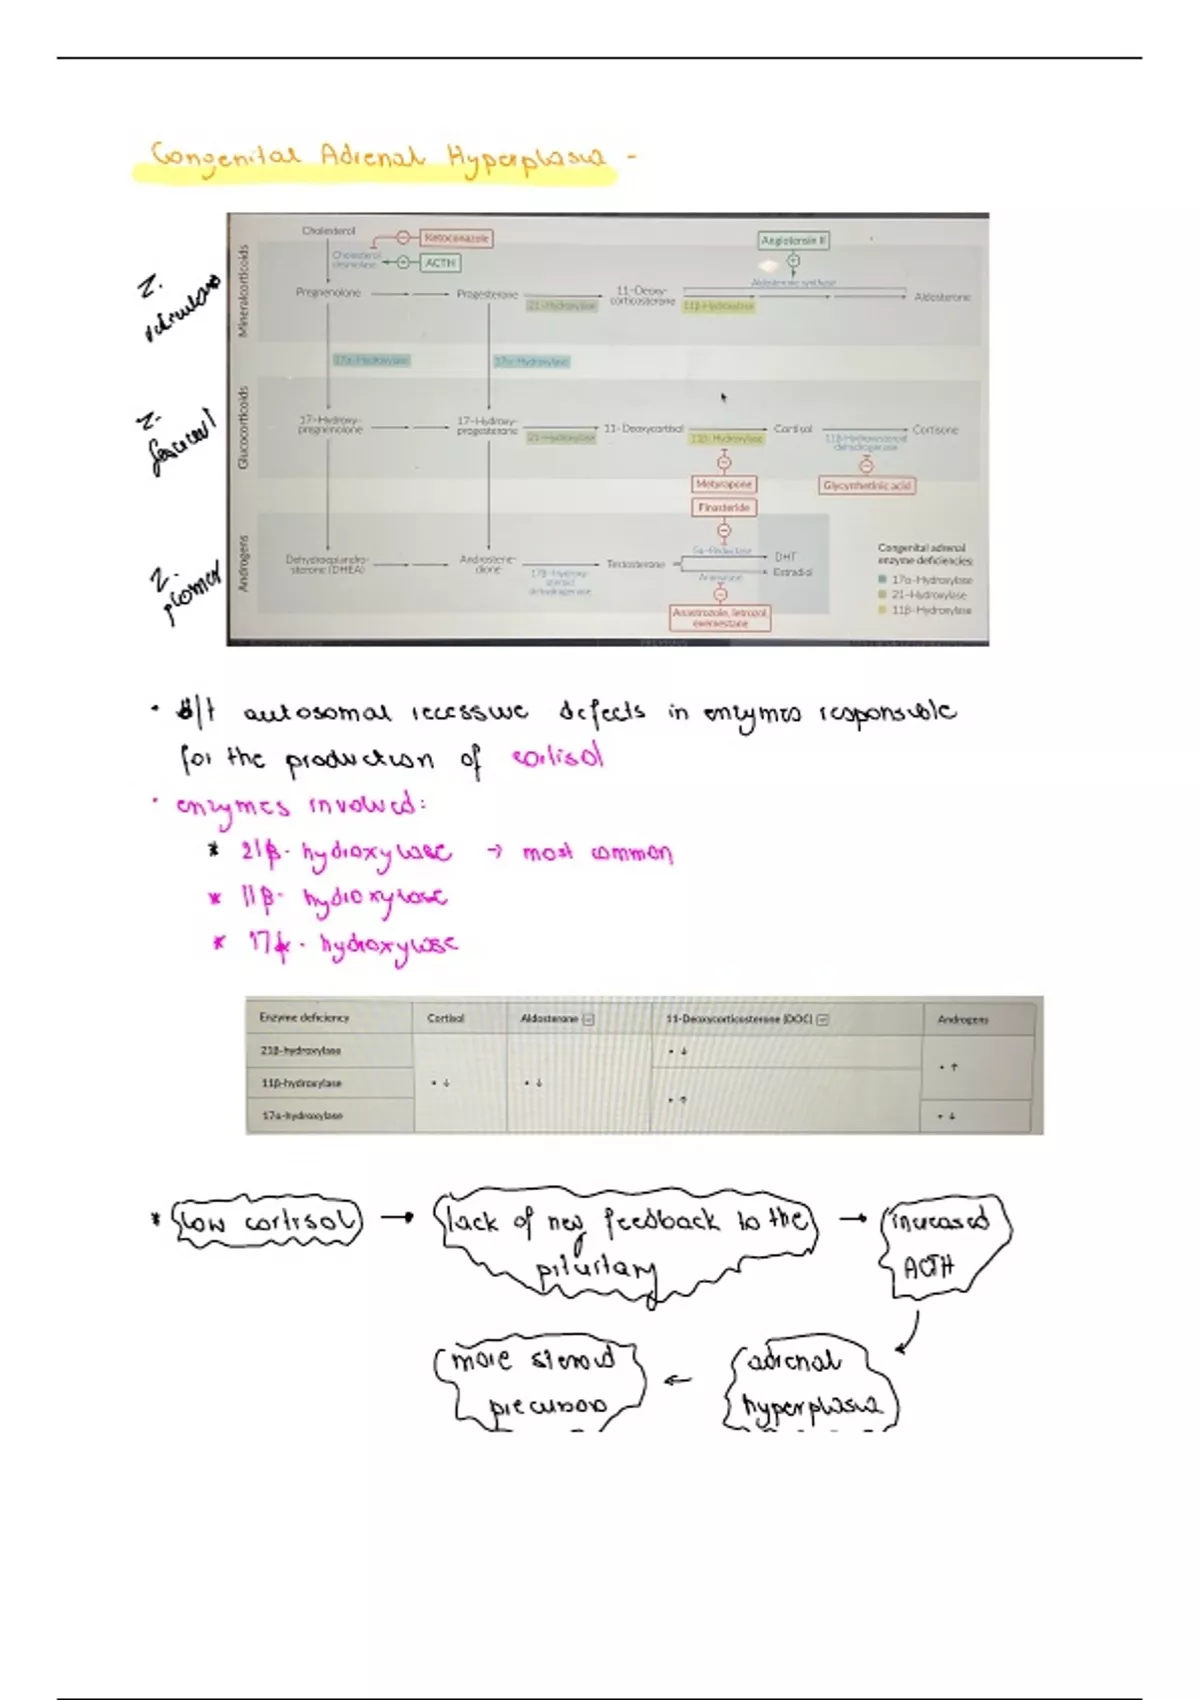 Congenital Adrenal Hyperplasia -
Cholesterol
Ketoconazole
Angiotensin II
Cholesterol
desmolase
ACTH
Aldosterone synthase
Mineralcorticoids
Z.
Pregnenolone
Progesterone
21-Hydroxylase
11-Deoxy-
corticosterone
11β-Hydroxylase
Aldosterone
17α-Hydroxylase
17α-Hydroxylase
Glucocorticoids
Z.
17-Hydroxy-
pregnenolone
17-Hydroxy-
progesterone
21-Hydroxylase
11-Deoxycortisol
11β-Hydroxylase
Cortisol
11β-Hydroxysteroid
dehydrogenase
Cortisone
Metyrapone
Glycyrrhetinic acid
Finasteride
Androgens
Z.
Dehydroepiandro-
sterone (DHEA)
Androstene-
dione
17β-Hydroxy-
steroid
dehydrogenase
Testosterone
5α-Reductase
DHT
Aromatase
Estradiol
Anastrozole, letrozol,
exemestane
Congenital adrenal
enzyme deficiencies:
17α-Hydroxylase
21-Hydroxylase
11β-Hydroxylase
• d/t autosomal recessive defects in enzymes responsible
for the production of cortisol
• enzymes involved:
* 21β-hydroxylase → most common
* 11β-hydroxylase
* 17α-hydroxylase
Enzyme deficiency Cortisol Aldosterone 11-Deoxycorticosterone (DOC) Androgens
21β-hydroxylase • ↓
• ↑
11β-hydroxylase • ↓ • ↓
• ↑
17α-hydroxylase • ↓
* low cortisol → lack of neg feedback to the → increased
pituitary ACTH
more steroid ← adrenal
precursors hyperplasia